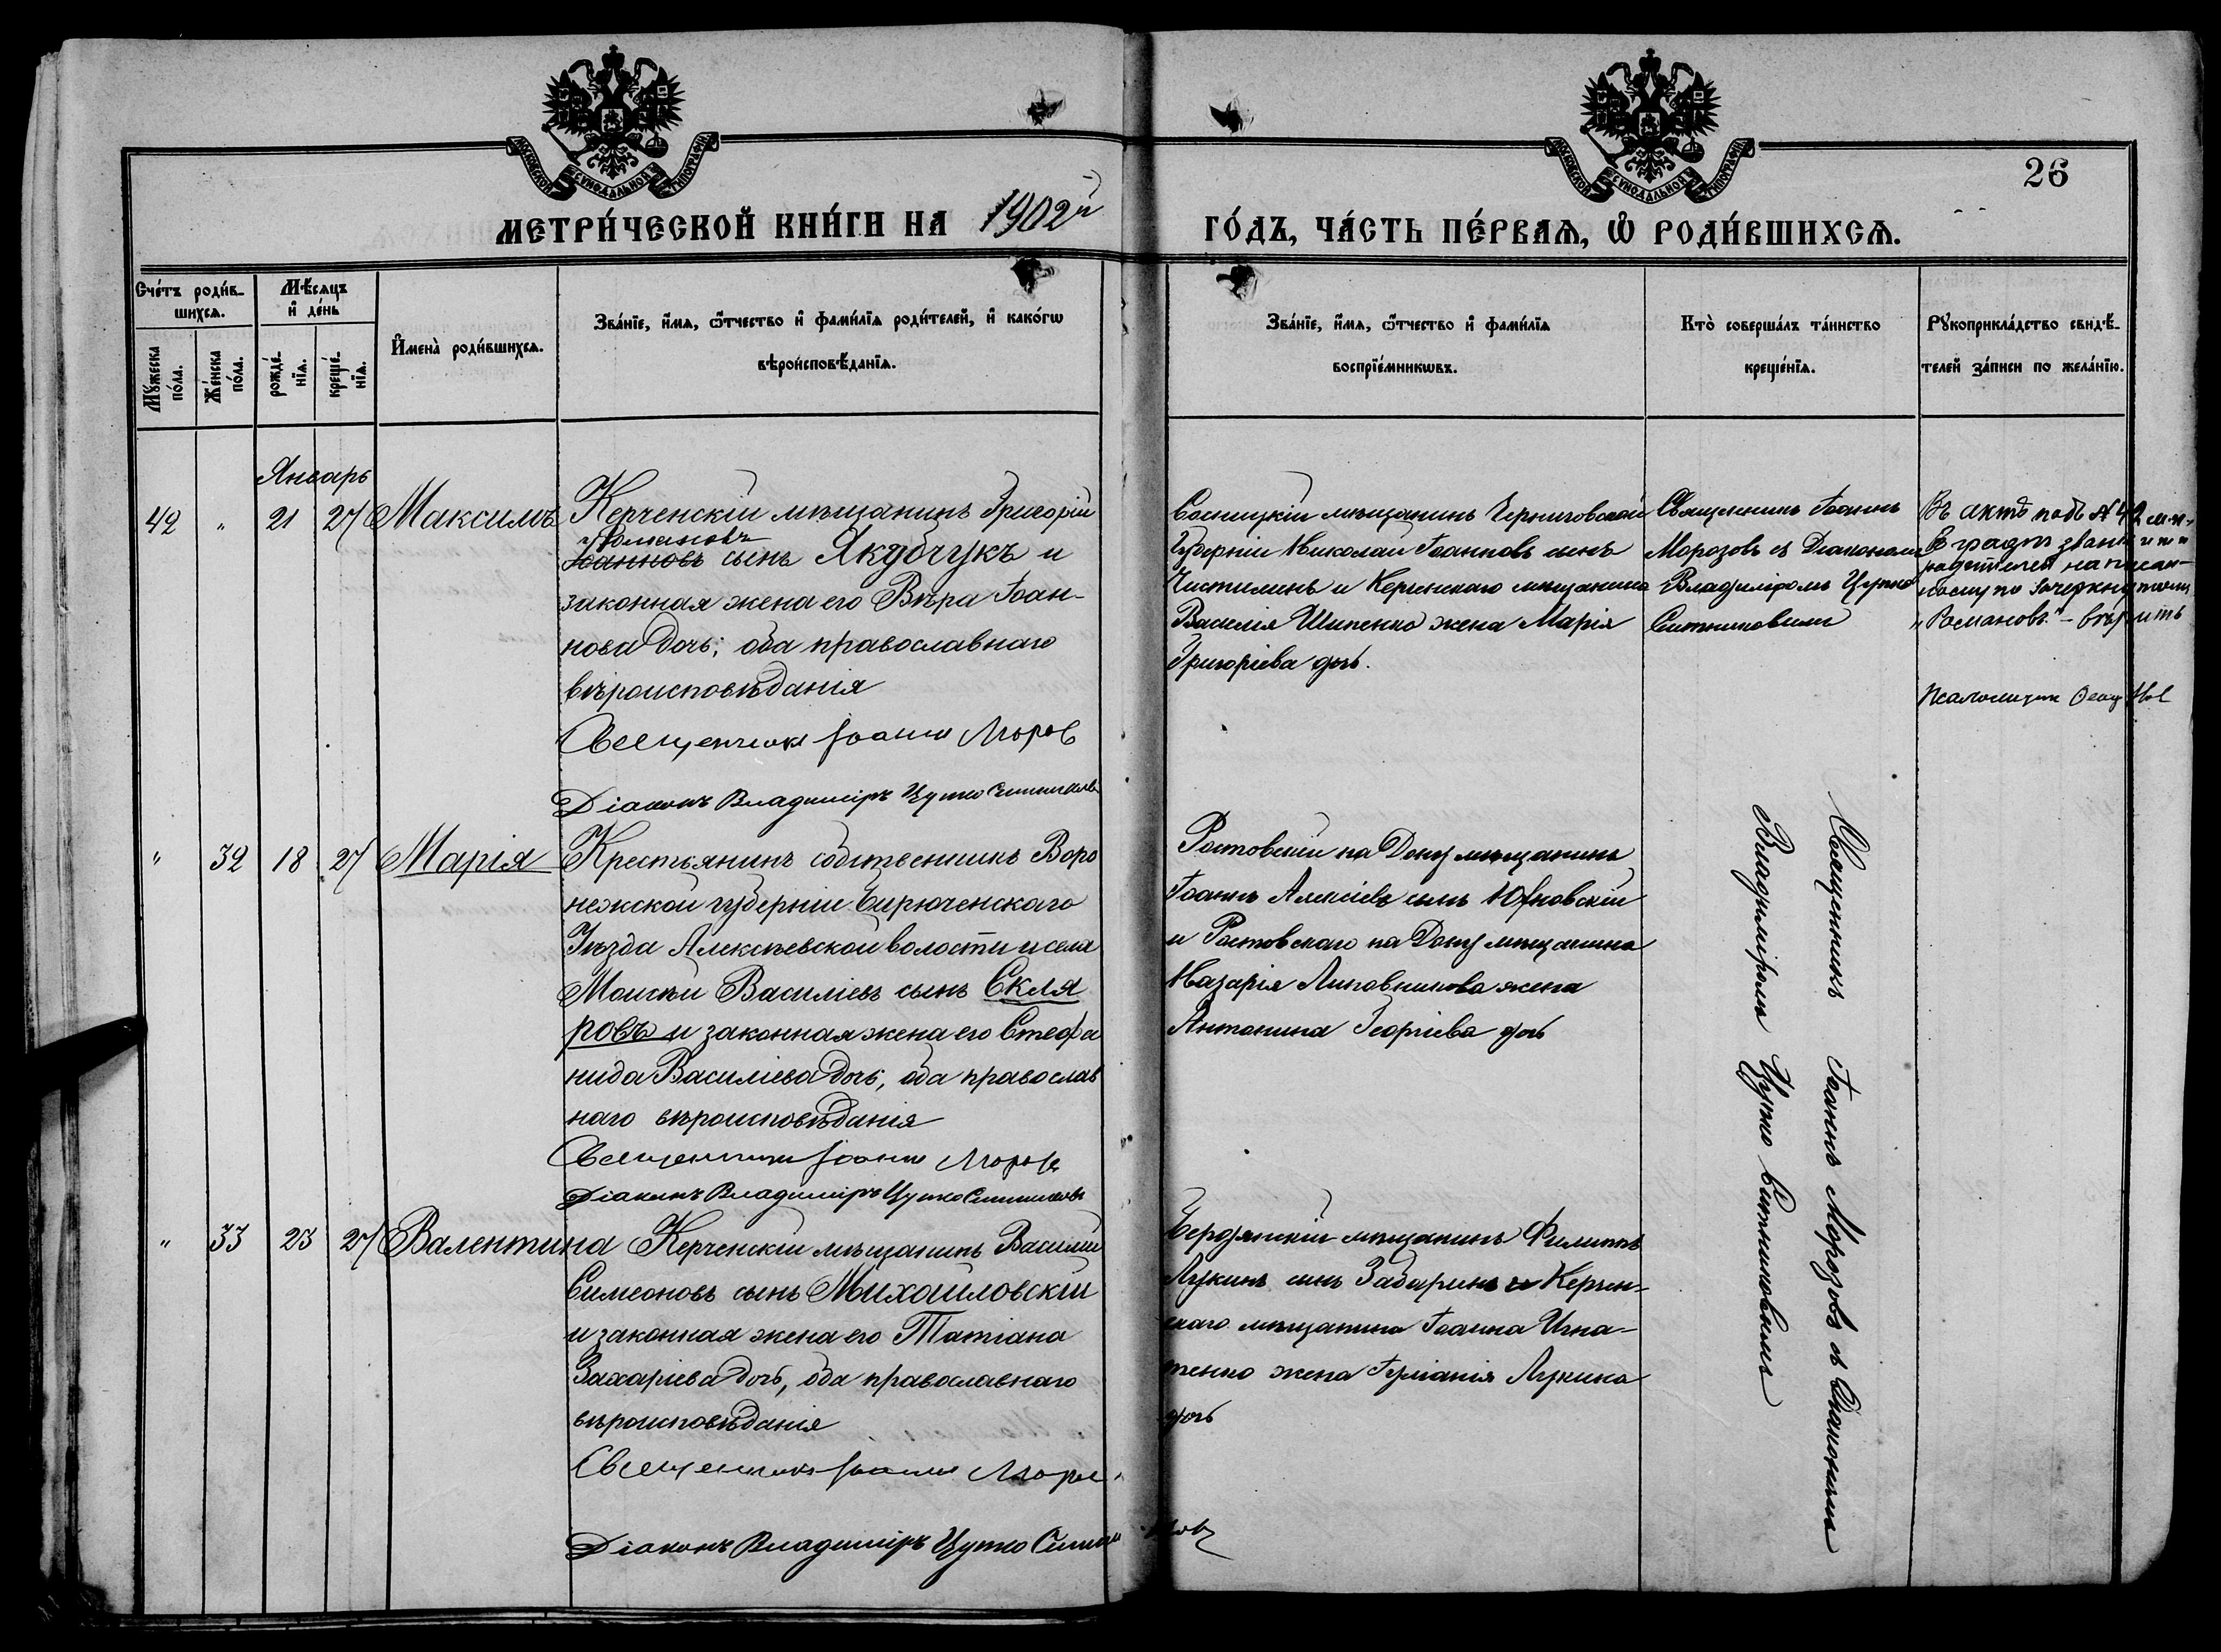 МОСКОВСКОЙ СѴНОДАЛЬНОЙ ТИПОГРАФІИ
МОСКОВСКОЙ СѴНОДАЛЬНОЙ ТИПОГРАФІИ
26
МЕТРИ́ЧЕСКОЙ КНИ́ГИ НА 1902й
ГО́ДЪ, ЧА́СТЬ ПЕ́РВАѦ, Ѡ РОДИ́ВШИХСѦ.
Сче́тъ роди́в-
шихсѧ.
Мꙋ́жеска по́ла.
Же́нска по́ла.
Мѣ́сѧцъ и҆ де́нь
рожде́-
нїѧ.
креще́-
нїѧ.
И҆мена̀ роди́вшихсѧ.
Зва́нїе, и҆́мѧ, ѻ҆́тчество и҆ фами́лїѧ роди́телей, и҆ како́гѡ
вѣроисповѣ́данїѧ.
Зва́нїе, и҆́мѧ, ѻ҆́тчество и҆ фами́лїѧ
воспрїе́мникѡвъ.
Кто̀ соверша́лъ та́инство
креще́нїѧ.
Рꙋкоприкла́дство свидѣ́-
телей за́писи по жела́нїю.
Январь
42 " 21 27 Максимъ
Керченскій мѣщанинъ Григорій
Романовъ
Іоанновъ сынъ Якубчукъ и
законная жена его Вѣра Іоан-
нова дочь; оба православнаго
вѣроисповѣданія
Священникъ Іоаннъ Мороз
Діаконъ Владиміръ Цутко Ситниковъ
Сосницкій мѣщанинъ Черниговской
Губерніи Николай Іоанновъ сынъ
Чистилинъ и Керченскаго мѣщанина
Василія Шипенко жена Марія
Григоріева дочь.
Священникъ Іоаннъ
Морозовъ съ Діакономъ
Владиміромъ Цутко
Ситниковымъ
Въ актѣ подъ № 42
въ графѣ званіе
родителей написан-
ному по зачеркнутому
"Романовъ" - вѣрить
Псаломщик
" 32 18 27 Марія
Крестьянинъ собственникъ Воро
нежской губерніи Бирюченскаго
Уѣзда Алексѣевской волости и села
Моисей Василіевъ сынъ Скля
ровъ и законная жена его Стефа
нида Василіева дочь; оба православ
наго вѣроисповѣданія
Священникъ Іоаннъ Мороз
Діаконъ Владиміръ Цутко Ситниковъ
Ростовскій на Дону мѣщанинъ
Іоаннъ Алексіевъ сынъ
и Ростовскаго на Дону мѣщанина
Назарія Липовникова жена
Антонина Георгіева дочь
Священникъ Іоаннъ Морозовъ съ Діакономъ
Владиміромъ Цутко Ситниковымъ
" 33 23 27 Валентина
Керченскій мѣщанинъ Василій
Симеоновъ сынъ Михайловскій
и законная жена его Татіана
Захаріева дочь, оба православнаго
вѣроисповѣданія
Священникъ Іоаннъ Мороз
Діаконъ Владиміръ Цутко Ситниковъ
Бердянскій мѣщанинъ Филиппъ
Лукинъ сынъ Забаринъ и Керчен-
скаго мѣщанина Іоанна Игна-
тенко жена Іуліанія Лукина
дочь